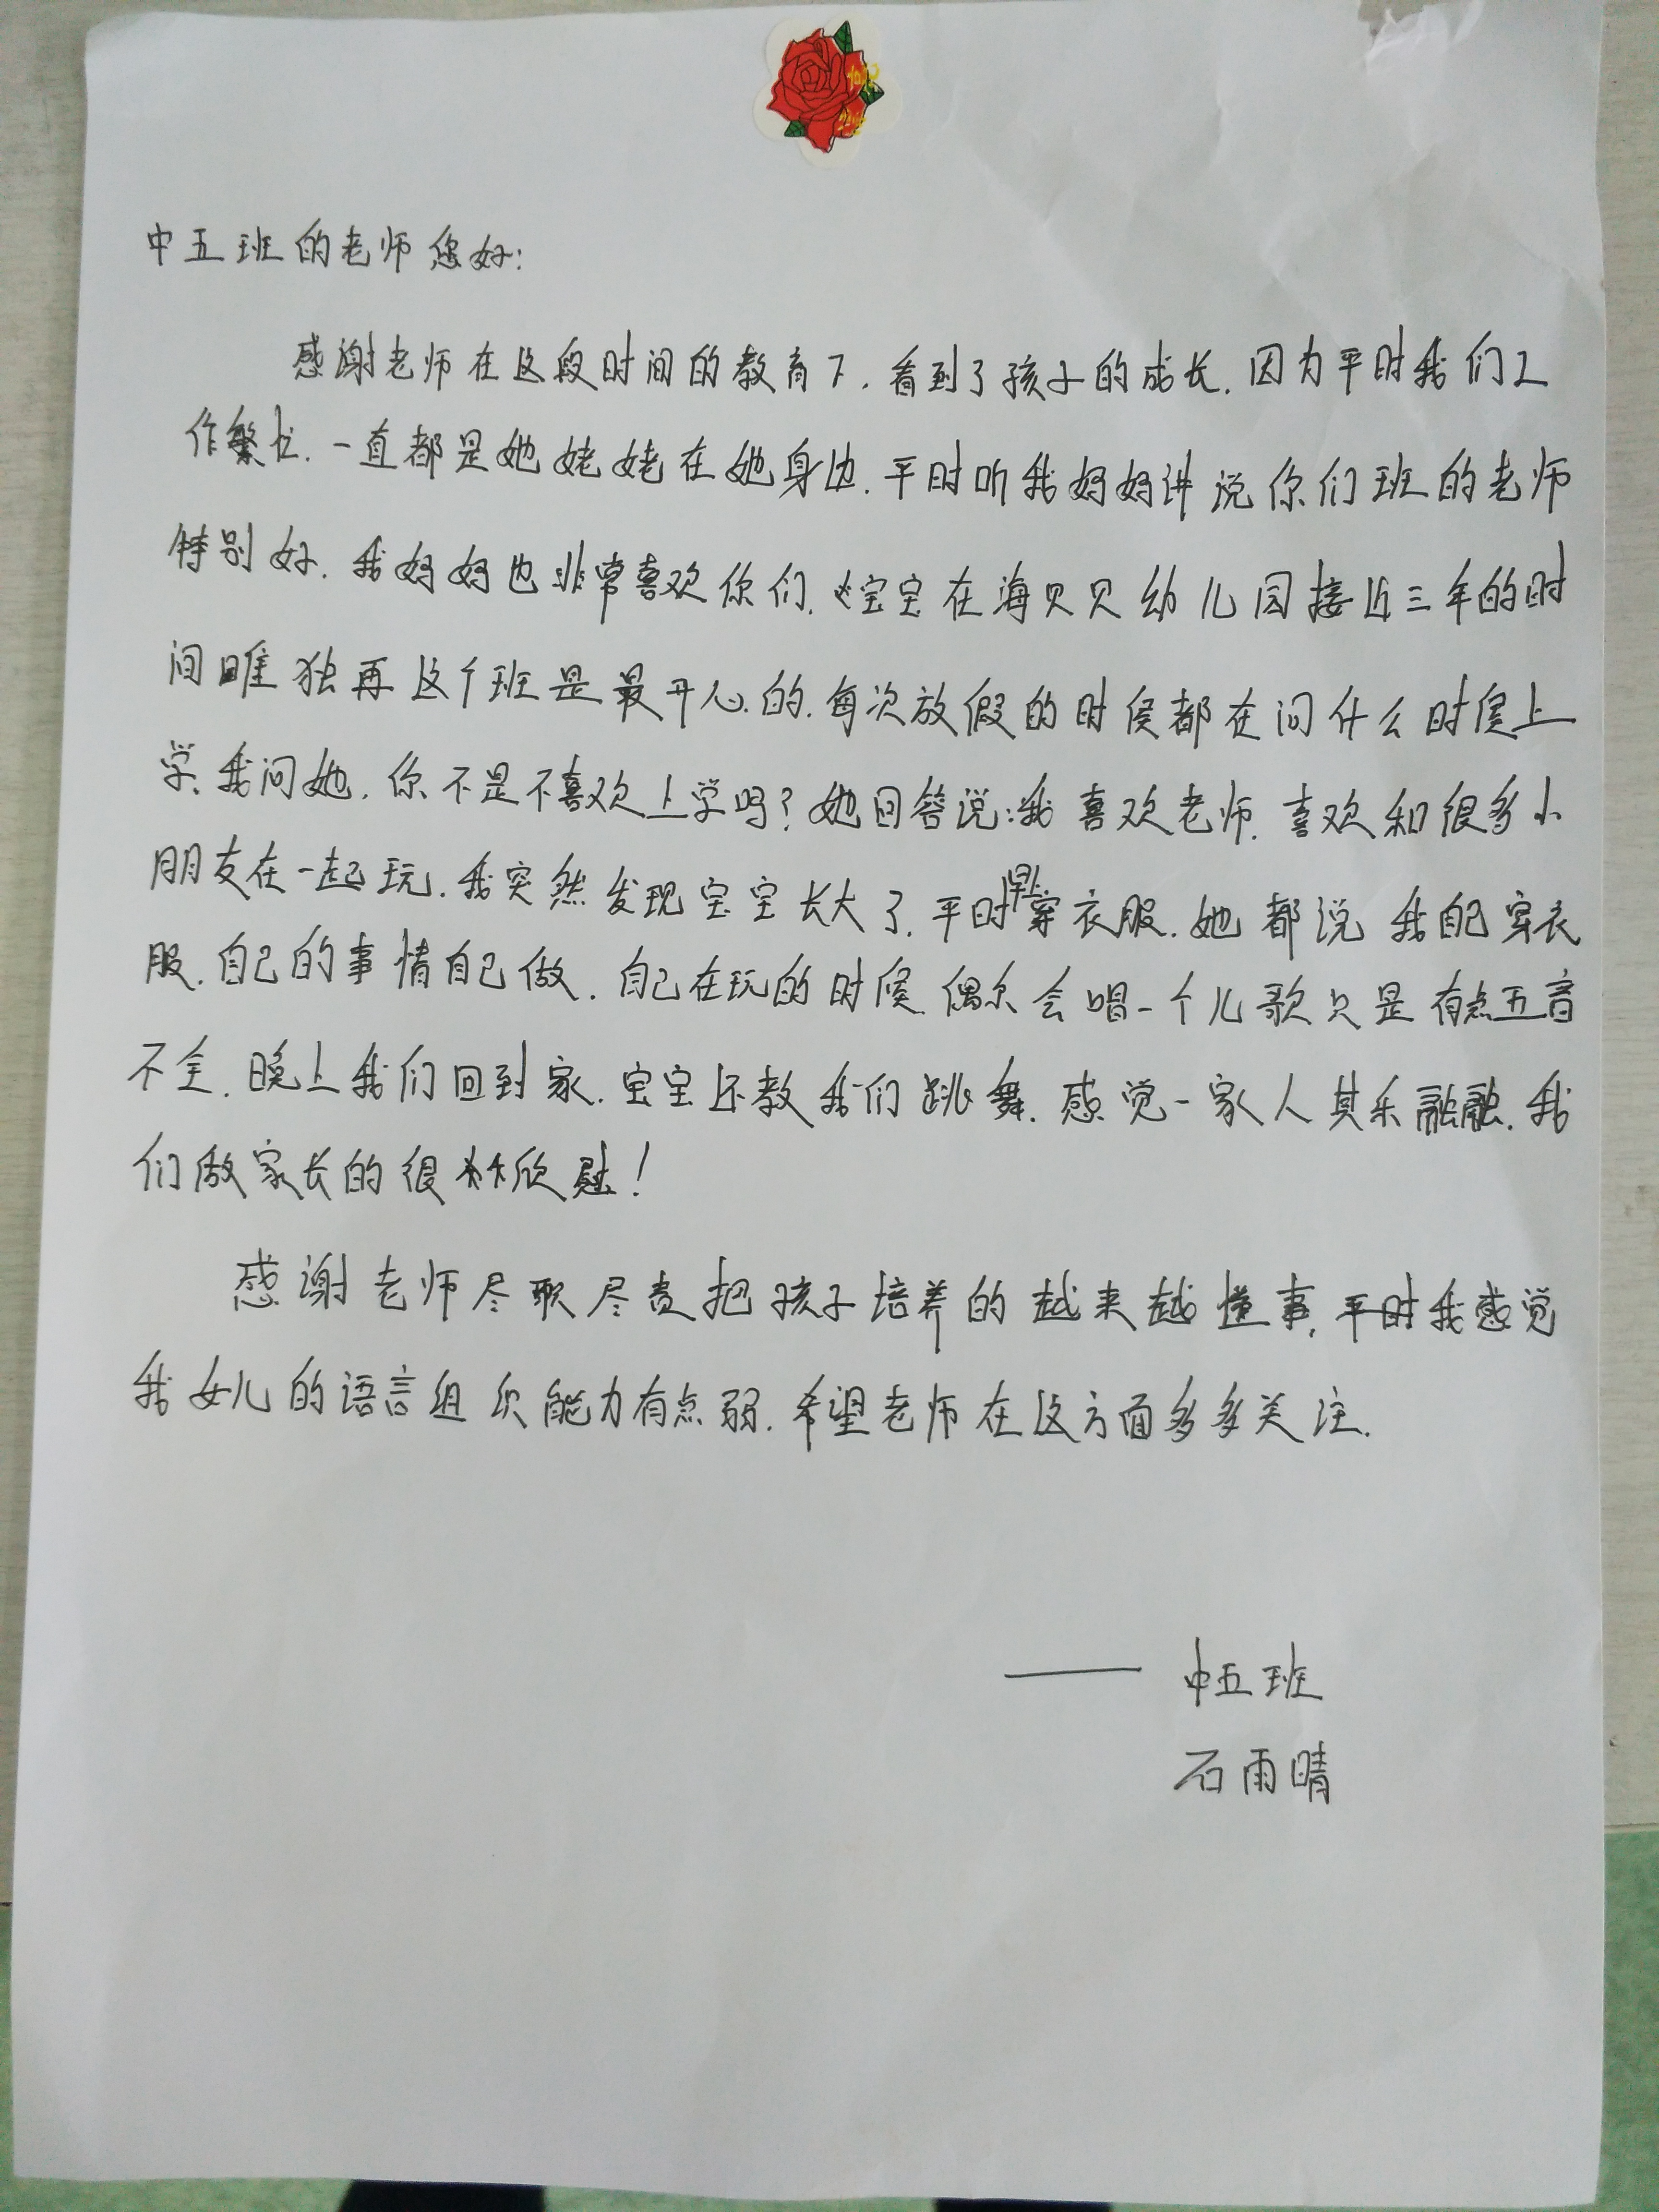 中五班的老师您好:
感谢老师在这段时间的教育下.看到了孩子的成长.因为平时我们工
作繁忙.一直都是她姥姥在她身边.平时听我妈妈讲说你们班的老师
特别好.我妈妈也非常喜欢你们.宝宝在海贝贝幼儿园接近三年的时
间唯独再这个班是最开心的.每次放假的时侯都在问什么时侯上
学.我问她.你不是不喜欢上学吗?她回答说:我喜欢老师.喜欢和很多小
朋友在一起玩.我突然发现宝宝长大了.平时早上穿衣服.她都说我自己穿衣
服.自己的事情自己做.自己在玩的时候.偶尔会唱一个儿歌只是有点五音
不全.晚上我们回到家.宝宝还教我们跳舞.感觉一家人其乐融融.我
们做家长的很欣慰!
感谢老师尽职尽责把孩子培养的越来越懂事,平时我感觉
我女儿的语言组织能力有点弱.希望老师在这方面多多关注.
—— 中五班
石雨晴